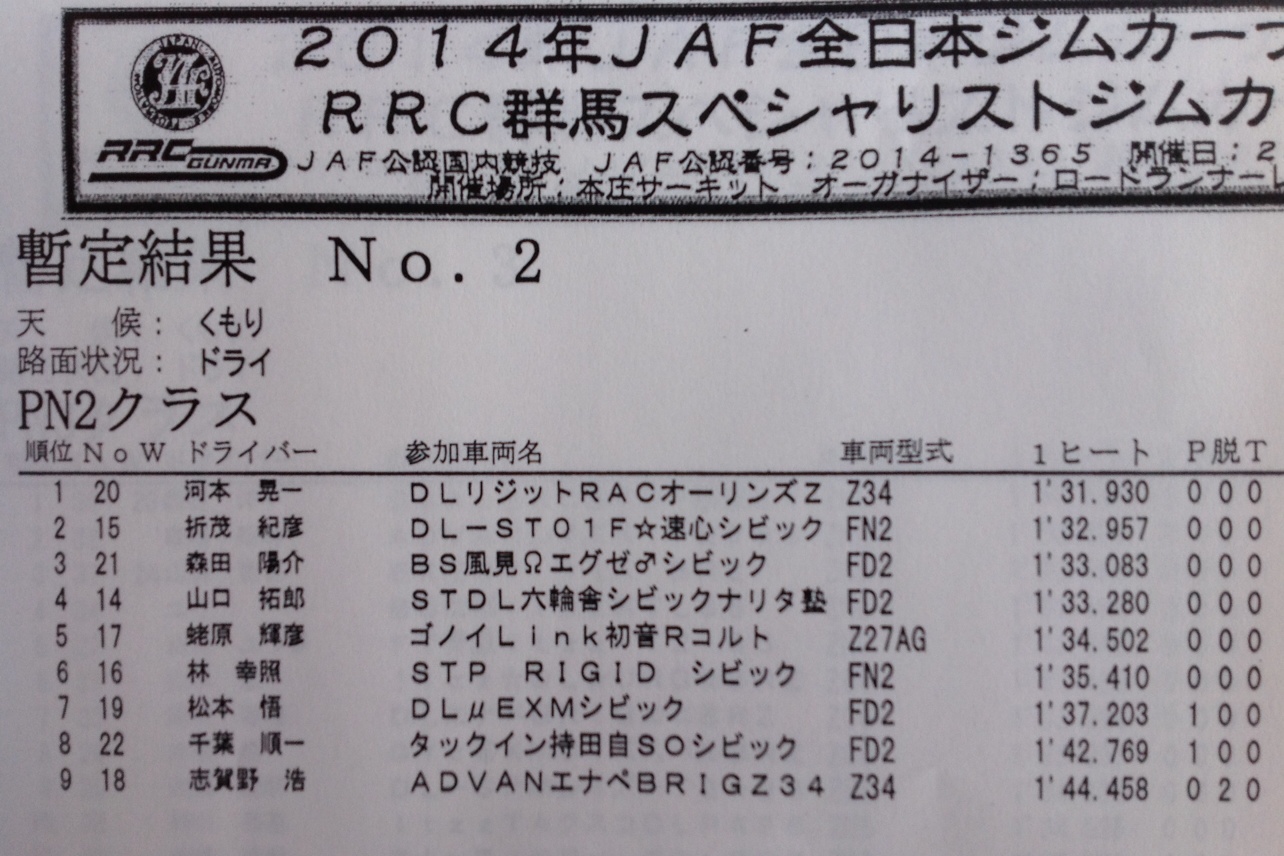 2014年JAF全日本ジムカーナ
RRC群馬スペシャリストジムカ
RRC GUNMA
JAF公認国内競技　JAF公認番号：2014－1365　開催日：2
開催場所：本庄サーキット　オーガナイザー：ロードランナーレ
暫定結果　No．2
天　候：くもり
路面状況：ドライ
PN2クラス
順位 No W ドライバー 参加車両名 車両型式 1ヒート P脱T
1 20 河本　晃一 DLリジットRACオーリンズZ Z34 1'31.930 0 0 0
2 15 折茂　紀彦 DL－ST01F☆速心シビック FN2 1'32.957 0 0 0
3 21 森田　陽介 BS風見Ωエグゼ♂シビック FD2 1'33.083 0 0 0
4 14 山口　拓郎 STDL六輪舎シビックナリタ塾 FD2 1'33.280 0 0 0
5 17 蛯原　輝彦 ゴノイLink初音Rコルト Z27AG 1'34.502 0 0 0
6 16 林　幸照 STP　RIGID　シビック FN2 1'35.410 0 0 0
7 19 松本　悟 DLμEXMシビック FD2 1'37.203 1 0 0
8 22 千葉　順一 タックイン持田自SOシビック FD2 1'42.769 1 0 0
9 18 志賀野　浩 ADVANエナペBRIGZ34 Z34 1'44.458 0 2 0